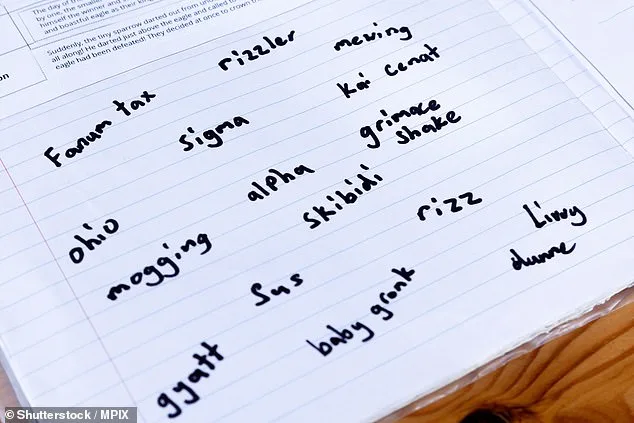 The day of
himself the winner and
and boastful eagle as their
Suddenly, the tiny sparrow darted out from
all along! He darted just above the eagle and called to
eagle had been defeated! They decided at once to crown
on
rizzler
mewing
Fanum tax
sigma
Kai Cenat
grimace
shake
ohio
alpha
mogging
skibidi
rizz
Livvy
dunne
sus
baby gronk
gyatt
© Shutterstock / MPIX